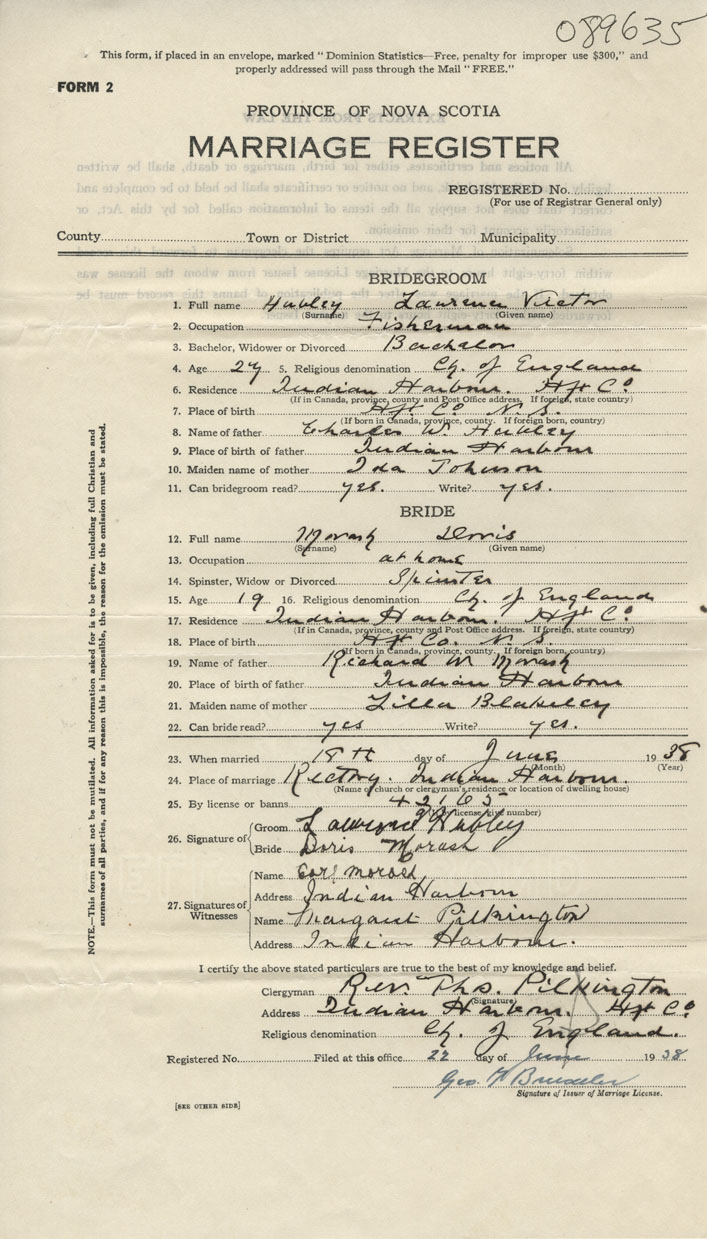 089635
This form, if placed in an envelope, marked "Dominion Statistics—Free, penalty for improper use $300," and
properly addressed will pass through the Mail "FREE."
FORM 2
PROVINCE OF NOVA SCOTIA
MARRIAGE REGISTER
REGISTERED No.
(For use of Registrar General only)
County Town or District Municipality
BRIDEGROOM
1. Full name Hubley Lawrence Victor
(Surname) (Given name)
2. Occupation Fisherman
3. Bachelor, Widower or Divorced Bachelor
4. Age 27 5. Religious denomination Ch. of England
6. Residence Indian Harbour. Hfx Co
(If in Canada, province, county and Post Office address. If foreign, state country)
7. Place of birth Hfx Co N. S.
(If born in Canada, province, county. If foreign born, country)
8. Name of father Charles W. Hubley
9. Place of birth of father Indian Harbour
10. Maiden name of mother Ida Johnson
11. Can bridegroom read? yes. Write? yes.
BRIDE
12. Full name Morash Doris
(Surname) (Given name)
13. Occupation at home
14. Spinster, Widow or Divorced Spinster
15. Age 19 16. Religious denomination Ch. of England
17. Residence Indian Harbour. Hfx Co.
(If in Canada, province, county and Post Office address. If foreign, state country)
18. Place of birth Hfx Co. N. S.
(If born in Canada, province, county. If foreign born, country)
19. Name of father Richard W Morash
20. Place of birth of father Indian Harbour
21. Maiden name of mother Lilla Blakeley
22. Can bride read? yes Write? yes.
23. When married 18th day of June 1938
(Month) (Year)
24. Place of marriage Rectory. Indian Harbour.
(Name of church or clergyman's residence or location of dwelling house)
25. By license or banns 42165
(If by license, give number)
26. Signature of Groom Lawrence Hubley
Bride Doris Morash
27. Signatures of Witnesses Name Earl Morash
Address Indian Harbour
Name Margaret Pilkington
Address Indian Harbour.
I certify the above stated particulars are true to the best of my knowledge and belief.
Clergyman Rev. Thos. Pilkington
(Signature)
Address Indian Harbour. Hfx Co
Religious denomination Ch. of England.
Registered No. Filed at this office 22 day of June 1938
Geo. H
Signature of Issuer of Marriage License.
[SEE OTHER SIDE]
NOTE.—This form must not be mutilated. All information asked for is to be given, including full Christian and
surnames of all parties, and if for any reason this is impossible, the reason for the omission must be stated.